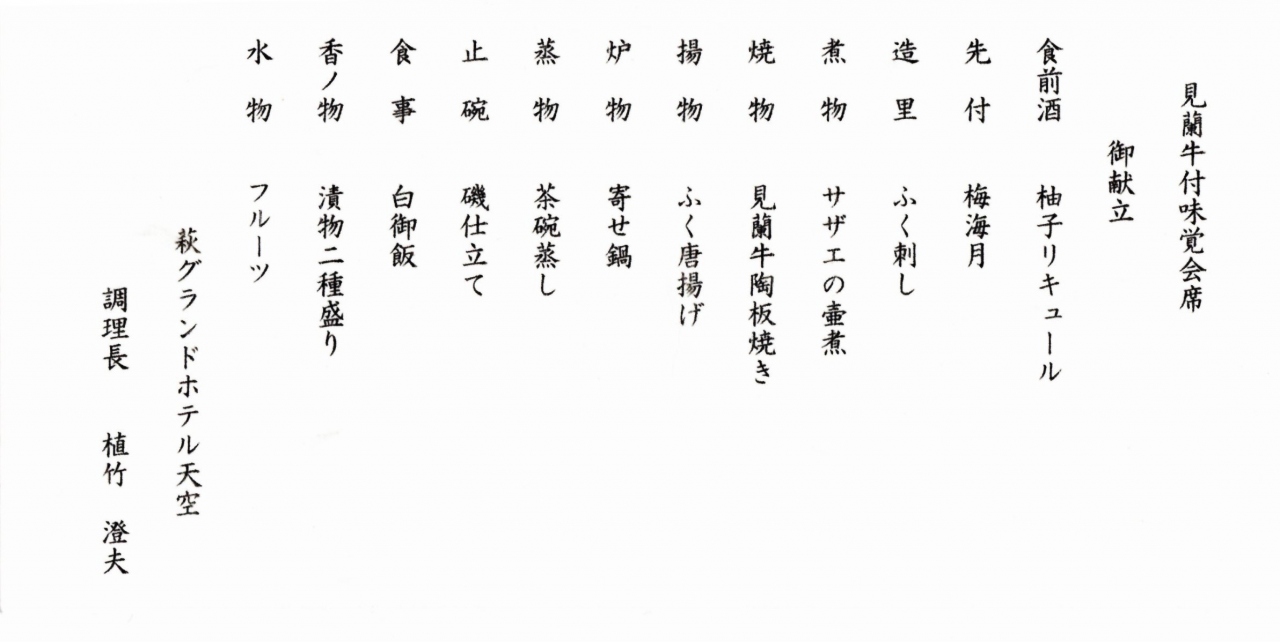 見蘭牛付味覚会席
御献立
食前酒 柚子リキュール
先付 梅海月
造里 ふく刺し
煮物 サザエの壷煮
焼物 見蘭牛陶板焼き
揚物 ふく唐揚げ
炉物 寄せ鍋
蒸物 茶碗蒸し
止碗 磯仕立て
食事 白御飯
香ノ物 漬物二種盛り
水物 フルーツ
萩グランドホテル天空
調理長 植竹 澄夫